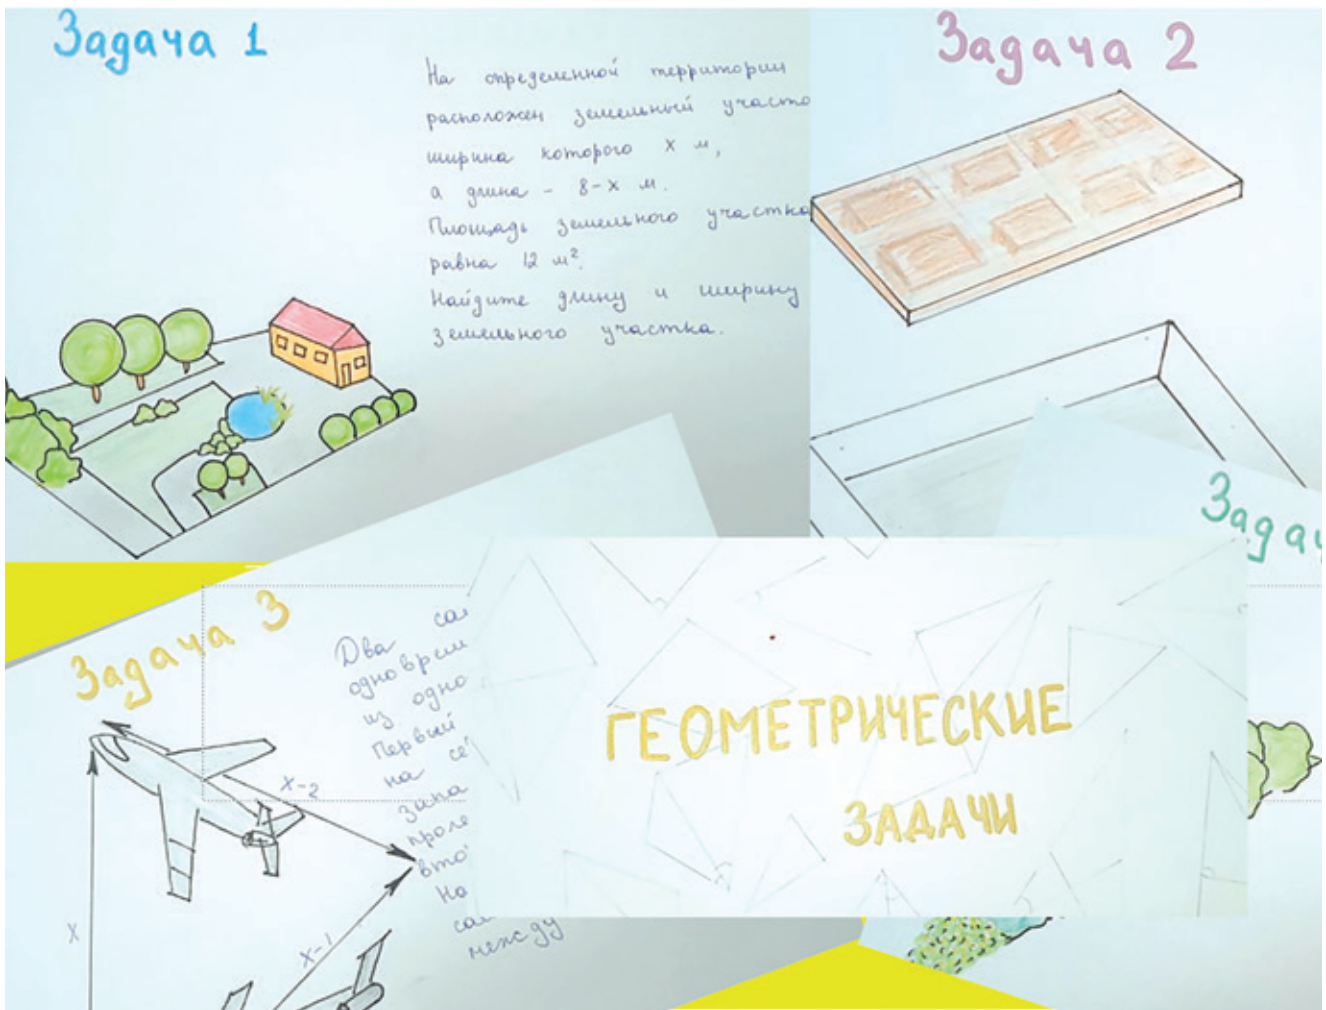 Задача 1
На определенной территории
расположен земельный участо
ширина которого х м,
а длина - 8-х м.
Площадь земельного участка
равна 12 м².
Найдите длину и ширину
земельного участка.
Задача 2
Задач
Задача 3
Два са
одноврем
из одно
Первый
на се
запа
проле
вто
На
са
между
х-2
х
х-1
ГЕОМЕТРИЧЕСКИЕ
ЗАДАЧИ